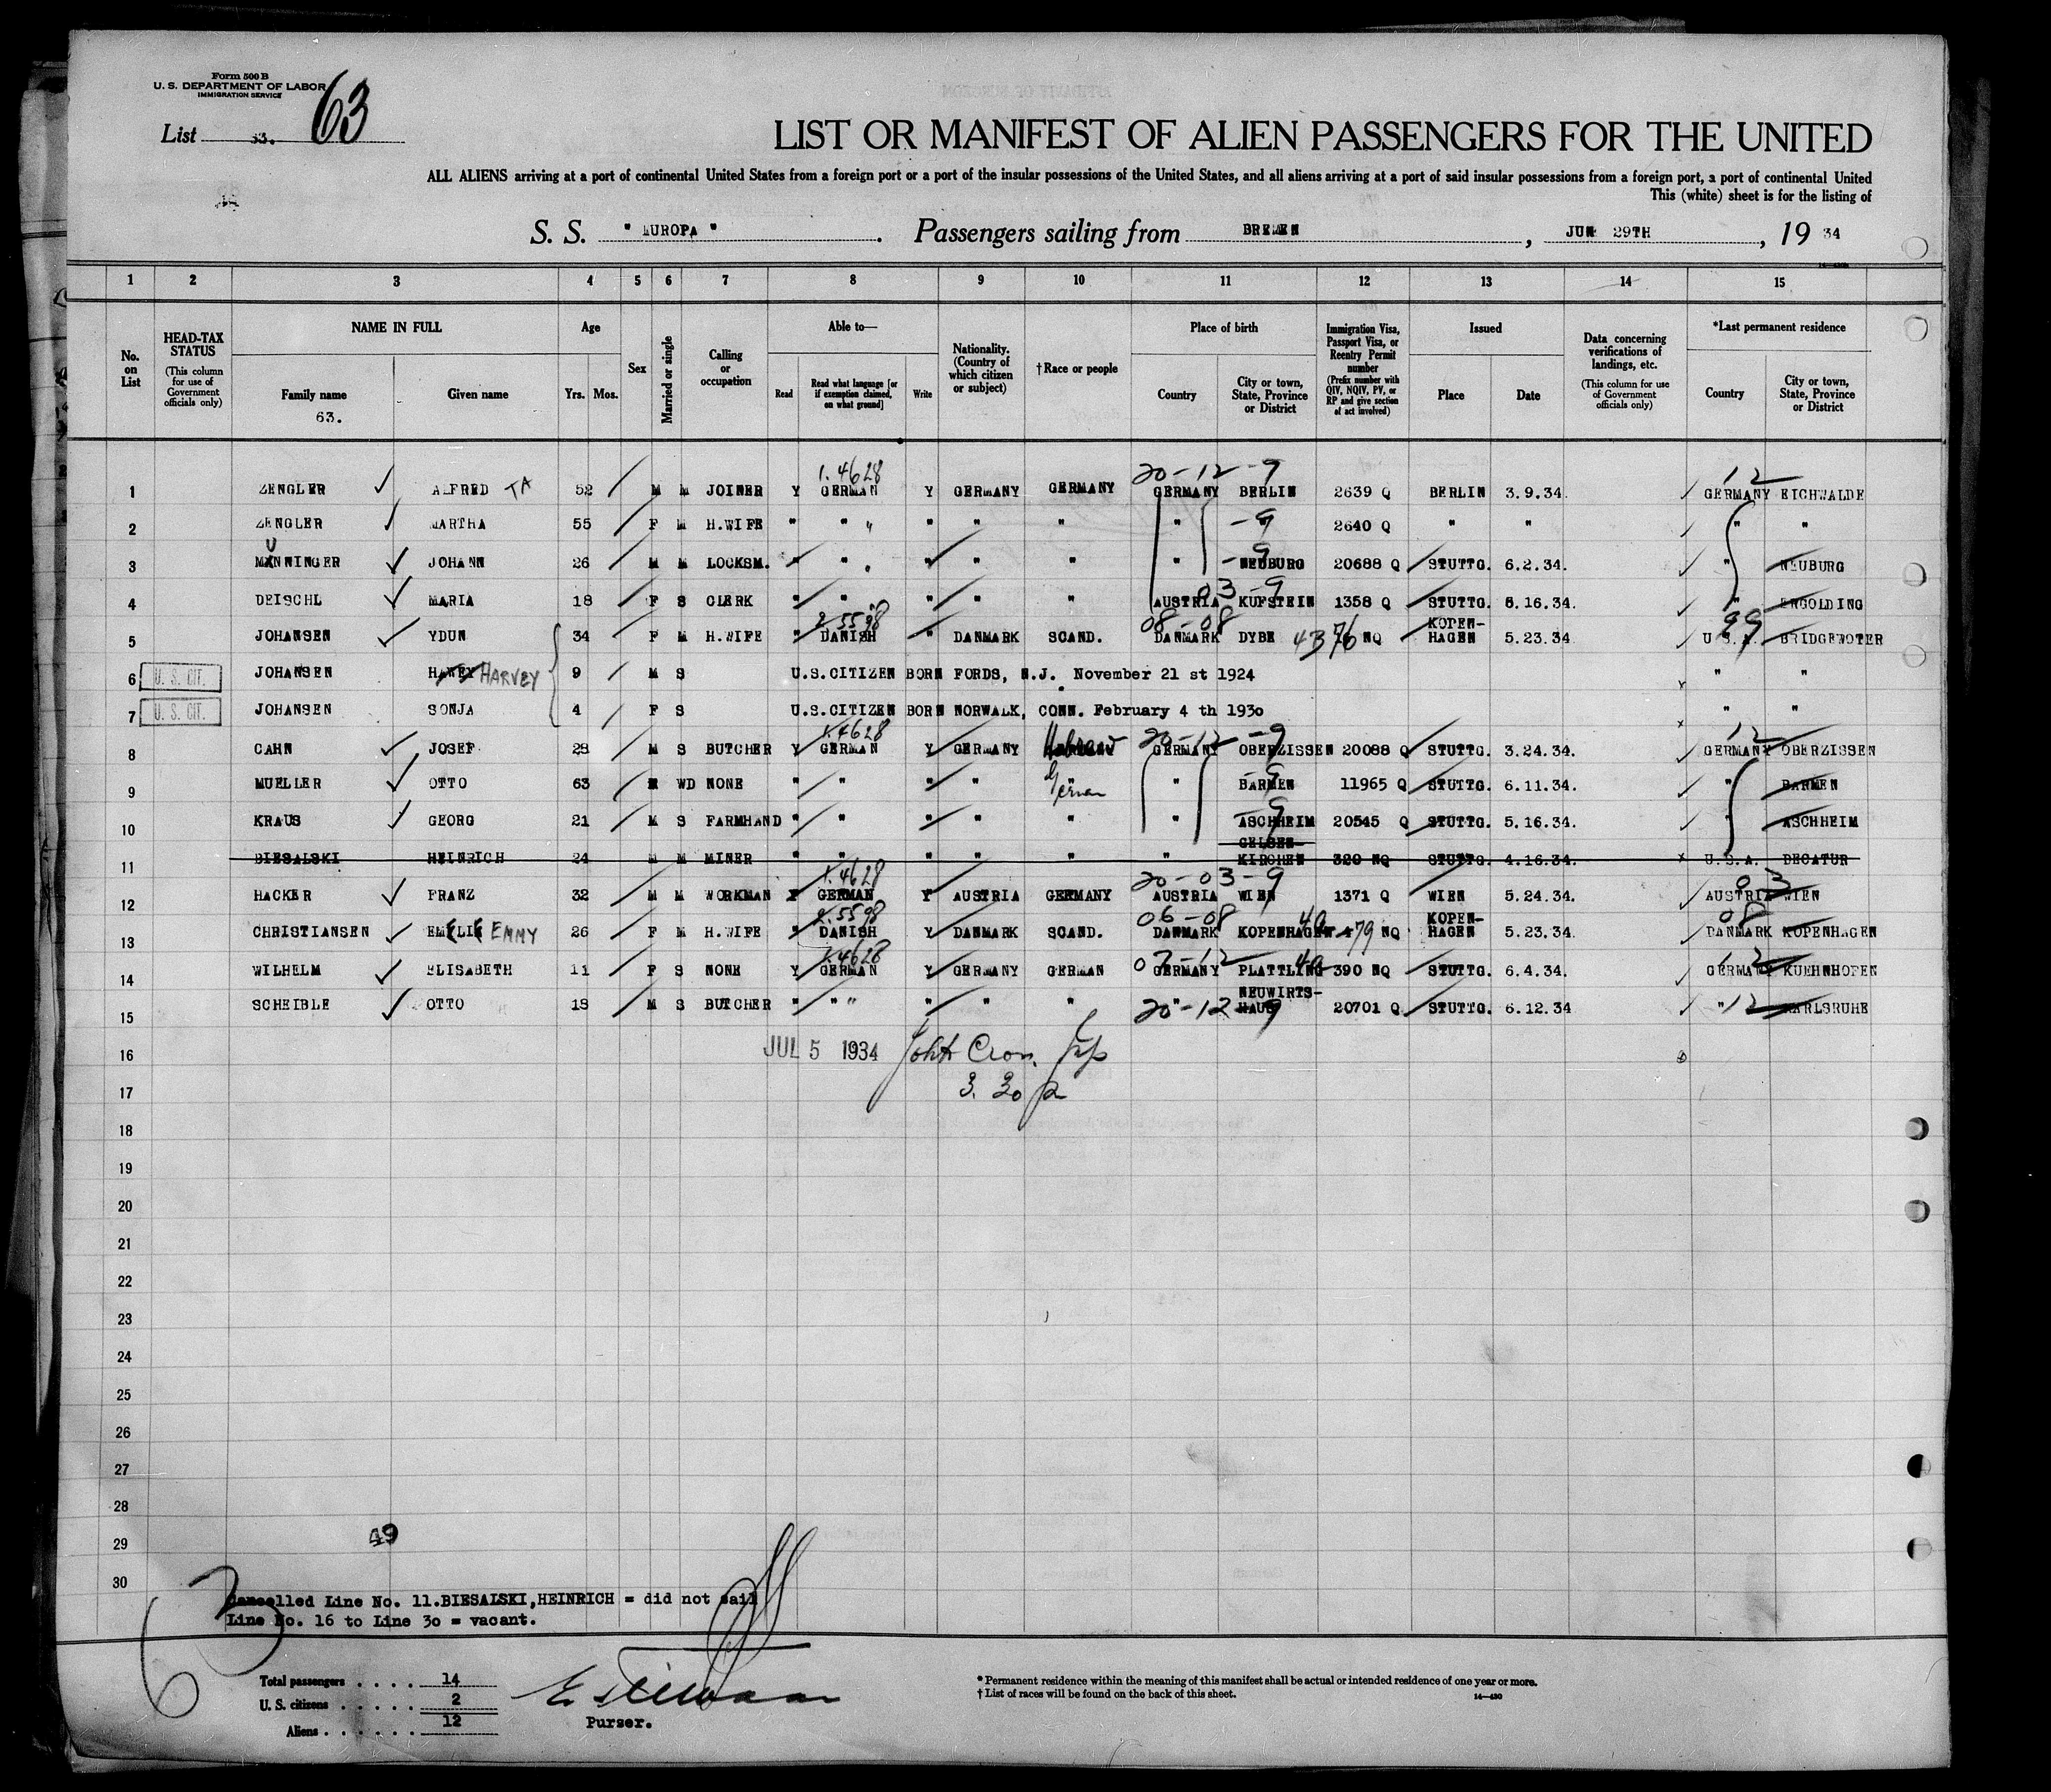 Form 500 B
U. S. DEPARTMENT OF LABOR
IMMIGRATION SERVICE
63
List 63.
LIST OR MANIFEST OF ALIEN PASSENGERS FOR THE UNITED
ALL ALIENS arriving at a port of continental United States from a foreign port or a port of the insular possessions of the United States, and all aliens arriving at a port of said insular possessions from a foreign port, a port of continental United
This (white) sheet is for the listing of
S. S. " EUROPA ". Passengers sailing from BREMEN, JUN 29TH, 19 34
1 2 3 4 5 6 7 8 9 10 11 12 13 14 15
No. on List
HEAD-TAX STATUS (This column for use of Government officials only)
NAME IN FULL Family name Given name
63.
Age Yrs. Mos.
Sex
Married or single
Calling or occupation
Able to— Read Read what language [or if exemption claimed, on what ground] Write
Nationality. (Country of which citizen or subject)
† Race or people
Place of birth Country City or town, State, Province or District
Immigration Visa, Passport Visa, or Reentry Permit number (Prefix number with QIV, NQIV, PV, or RP and give section of act involved)
Issued Place Date
Data concerning verifications of landings, etc. (This column for use of Government officials only)
*Last permanent residence Country City or town, State, Province or District
1.4628 20-12-9 12
1 ZENGLER ALFRED TA 52 M M JOINER Y GERMAN Y GERMANY GERMANY GERMANY BERLIN 2639 Q BERLIN 3.9.34. GERMANY EICHWALDE
2 ZENGLER MARTHA 55 F M H.WIFE " " " " " " " -9 2640 Q " " " "
3 MUNNINGER JOHANN 26 M M LOCKSM. " " " " " " -9 NEUBURG 20688 Q STUTTG. 6.2.34. " NEUBURG
03-9
4 DEISCHL MARIA 18 F S CLERK " " " " " AUSTRIA KUFSTEIN 1358 Q STUTTG. 5.16.34. " ENGOLDING
2.5598 08-08 99
5 JOHANSEN YDUN 34 F M H.WIFE " DANISH " DANMARK SCAND. DANMARK DYBE 4376 NQ KOPEN-HAGEN 5.23.34 U.S.A. BRIDGEWOTER
6 U. S. CIT. JOHANSEN HAWEY HARVEY 9 M S U.S.CITIZEN BORN FORDS, N.J. November 21 st 1924 " "
7 U. S. CIT. JOHANSEN SONJA 4 F S U.S.CITIZEN BORN NORWALK, CONN. February 4 th 1930 " "
1.4628 20-12-9 12
8 CAHN JOSEF M S BUTCHER Y GERMAN Y GERMANY Hebrew GERMANY OBERZISSEN 20088 Q STUTTG. 3.24.34. GERMANY OBERZISSEN
9 MUELLER OTTO 63 M WD NONE " " " " German " -9 BARMEN 11965 Q STUTTG. 6.11.34. " BARMEN
10 KRAUS GEORG 21 M S FARMHAND " " " " " " 9 ASCHHEIM 20545 Q STUTTG. 5.16.34. " ASCHHEIM
11 BIESALSKI HEINRICH 24 M M MINER " " " " " " GELSEN-KIRCHEN 320 NQ STUTTG. 4.16.34. U.S.A. DECATUR
1.4628 20-03-9 03
12 HACKER FRANZ 32 M M WORKMAN Y GERMAN Y AUSTRIA GERMANY AUSTRIA WIEN 1371 Q WIEN 5.24.34. AUSTRIA WIEN
2.5598 06-08 4a 08
13 CHRISTIANSEN EMELIE EMMY 26 F M H.WIFE " DANISH Y DANMARK SCAND. DANMARK KOPENHAGEN 479 NQ KOPEN-HAGEN 5.23.34. DANMARK KOPENHAGEN
1.4628 07-12 4a 12
14 WILHELM ELISABETH 11 F S NONE Y GERMAN Y GERMANY GERMAN GERMANY PLATTLING 390 NQ STUTTG. 6.4.34. GERMANY KUEHNHOFEN
15 SCHEIBLE OTTO M S BUTCHER " " " " " " " 20-12-9 NEUWIRTS-HAUS 20701 Q STUTTG. 6.12.34 " 12 KARLSRUHE
16 JUL 5 1934 John
17 3.30
18
19
20
21
22
23
24
25
26
27
28
29 49
30
Cancelled Line No. 11.BIESALSKI,HEINRICH = did not sail
Line No. 16 to Line 30 = vacant.
Total passengers . . . . 14
U. S. citizens . . . . . . 2
Aliens . . . . . . 12
Purser.
* Permanent residence within the meaning of this manifest shall be actual or intended residence of one year or more.
† List of races will be found on the back of this sheet.
14—430